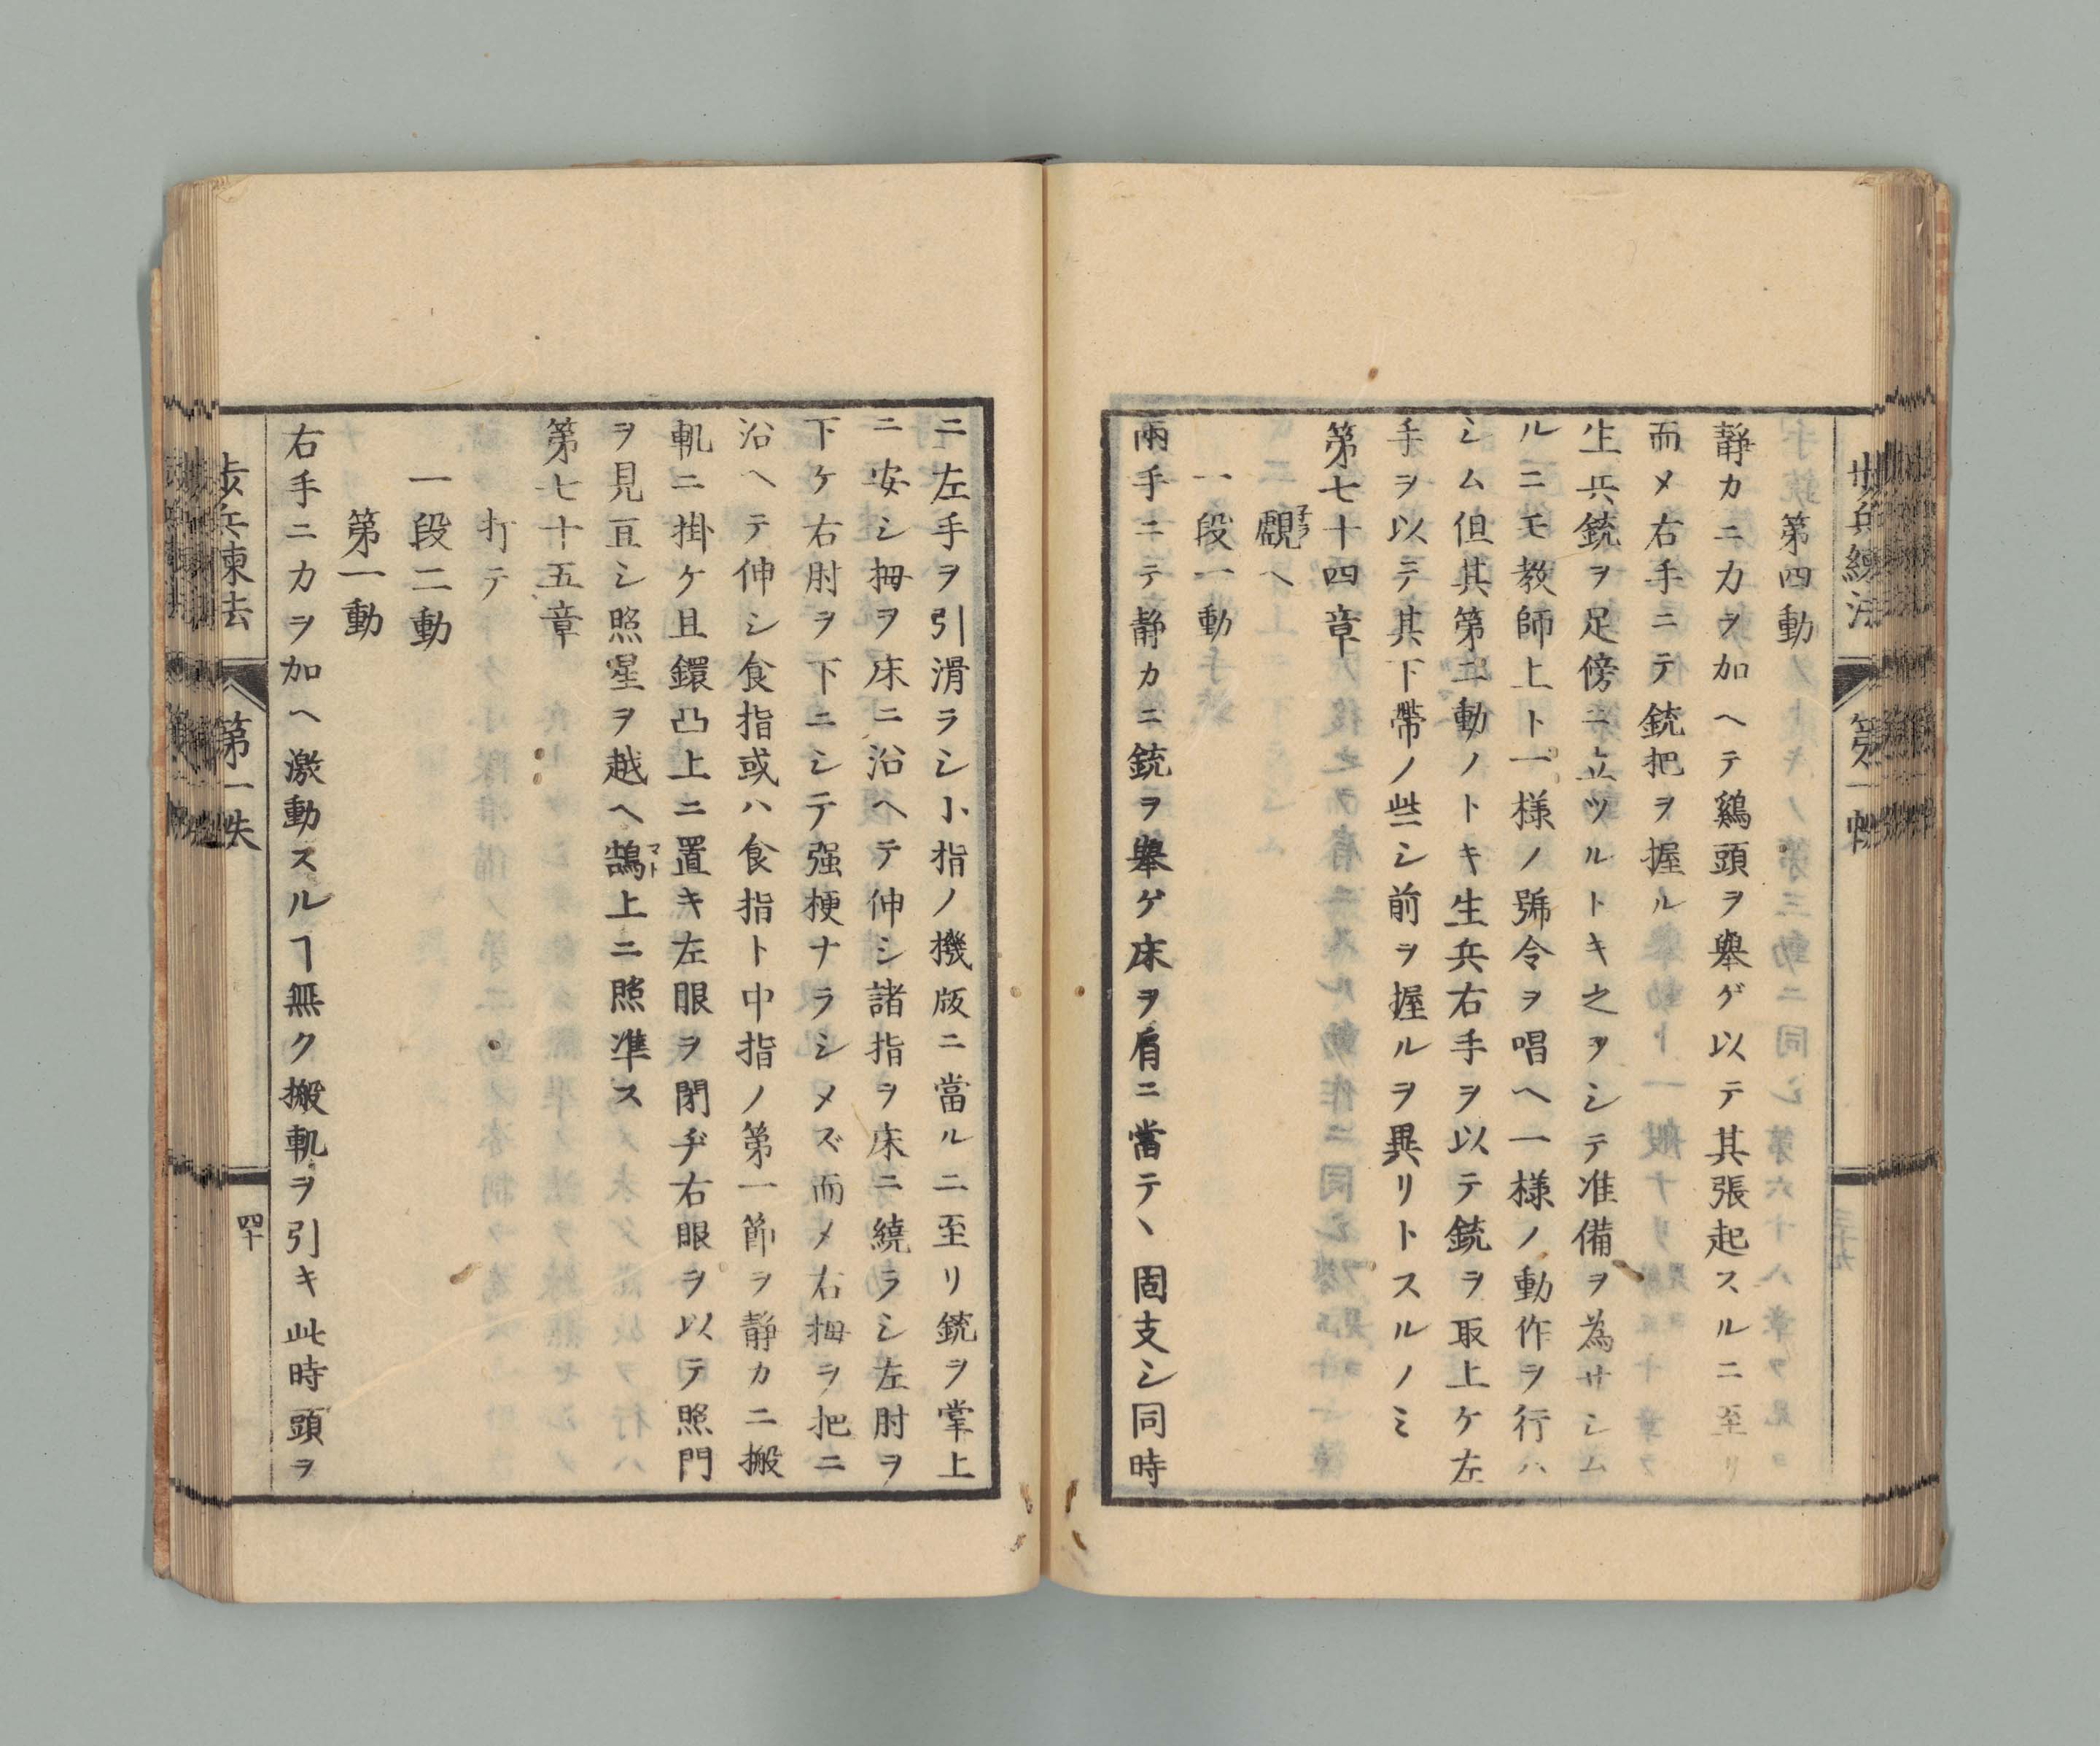 第四動
静カニ力ヲ加ヘテ鷄頭ヲ擧ゲ以テ其張起スルニ至リ
而メ右手ニテ銃把ヲ握ル
生兵銃ヲ足傍ニ立ツルトキ之ヲシテ准備ヲ為サシム
ルニモ教師上ト一様ノ號令ヲ唱ヘ一様ノ動作ヲ行ハ
シム但其第二動ノトキ生兵右手ヲ以テ銃ヲ取上ケ左
手ヲ以テ其下帶ノ些シ前ヲ握ルヲ異リトスルノミ
第七十四章
覷ヘ
一段一動
兩手ニテ静カニ銃ヲ擧ゲ床ヲ肩ニ當テヽ固支シ同時
ニ左手ヲ引滑ラシ小指ノ機版ニ當ルニ至リ銃ヲ掌上
ニ安シ拇ヲ床ニ沿ヘテ伸シ諸指ヲ床ニ繞ラシ左肘ヲ
下ケ右肘ヲ下ニシテ强梗ナラシメズ而メ右拇ヲ把ニ
沿ヘテ伸シ食指或ハ食指ト中指ノ第一節ヲ静カニ搬
軏ニ掛ケ且鐶凸上ニ置キ左眼ヲ閉ヂ右眼ヲ以テ照門
ヲ見亘シ照星ヲ越ヘ鵠マト上ニ照準ス
第七十五章
打テ
一段二動
第一動
右手ニカヲ加ヘ激動スルヿ無ク搬軏ヲ引キ此時頭ヲ
歩兵練法 第一帙 四十